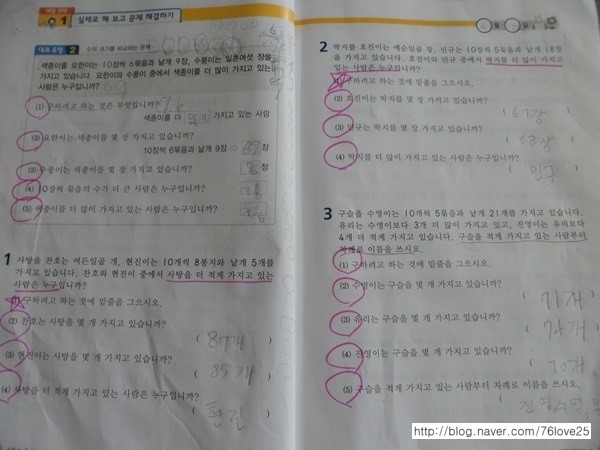 1 실제로 해 보고 문제 해결하기
대표 유형 2 수의 크기를 비교하는 문제
색종이를 요한이는 10장씩 6묶음과 낱개 9장, 수웅이는 일흔여섯 장을
가지고 있습니다. 요한이와 수웅이 중에서 색종이를 더 많이 가지고 있는
사람은 누구입니까?
(1) 구하려고 하는 것은 무엇입니까?
색종이를 더 많이 가지고 있는 사람
(2) 요한이는 색종이를 몇 장 가지고 있습니까?
10장씩 6묶음과 낱개 9장 ⇨ 69 장
(3) 수웅이는 색종이를 몇 장 가지고 있습니까?
장
(4) 10장씩 묶음의 수가 더 큰 사람은 누구입니까?
(5) 색종이를 더 많이 가지고 있는 사람은 누구입니까?
1 사탕을 찬호는 여든일곱 개, 현진이는 10개씩 8봉지와 낱개 5개를
가지고 있습니다. 찬호와 현진이 중에서 사탕을 더 적게 가지고 있는
사람은 누구입니까?
(1) 구하려고 하는 것에 밑줄을 그으시오.
(2) 찬호는 사탕을 몇 개 가지고 있습니까?
( 87개
(3) 현진이는 사탕을 몇 개 가지고 있습니까?
( 85개
(4) 사탕을 더 적게 가지고 있는 사람은 누구입니까?
( 현진
2 딱지를 호진이는 예순일곱 장, 민규는 10장씩 5묶음과 낱개 18장
을 가지고 있습니다. 호진이와 민규 중에서 딱지를 더 많이 가지고 있
는 사람은 누구입니까?
(1) 구하려고 하는 것에 밑줄을 그으시오.
(2) 호진이는 딱지를 몇 장 가지고 있습니까?
( 67장
(3) 민규는 딱지를 몇 장 가지고 있습니까?
( 68장
(4) 딱지를 더 많이 가지고 있는 사람은 누구입니까?
( 민규
3 구슬을 수영이는 10개씩 5묶음과 낱개 21개를 가지고 있습니다.
유리는 수영이보다 3개 더 많이 가지고 있고, 진영이는 유리보다
4개 더 적게 가지고 있습니다. 구슬을 적게 가지고 있는 사람부터
차례로 이름을 쓰시오.
(1) 구하려고 하는 것에 밑줄을 그으시오.
(2) 수영이는 구슬을 몇 개 가지고 있습니까?
( 71개
(3) 유리는 구슬을 몇 개 가지고 있습니까?
( 74개
(4) 진영이는 구슬을 몇 개 가지고 있습니까?
( 70개
(5) 구슬을 적게 가지고 있는 사람부터 차례로 이름을 쓰시오.
( 진영, 수영,
http://blog.naver.com/76love25